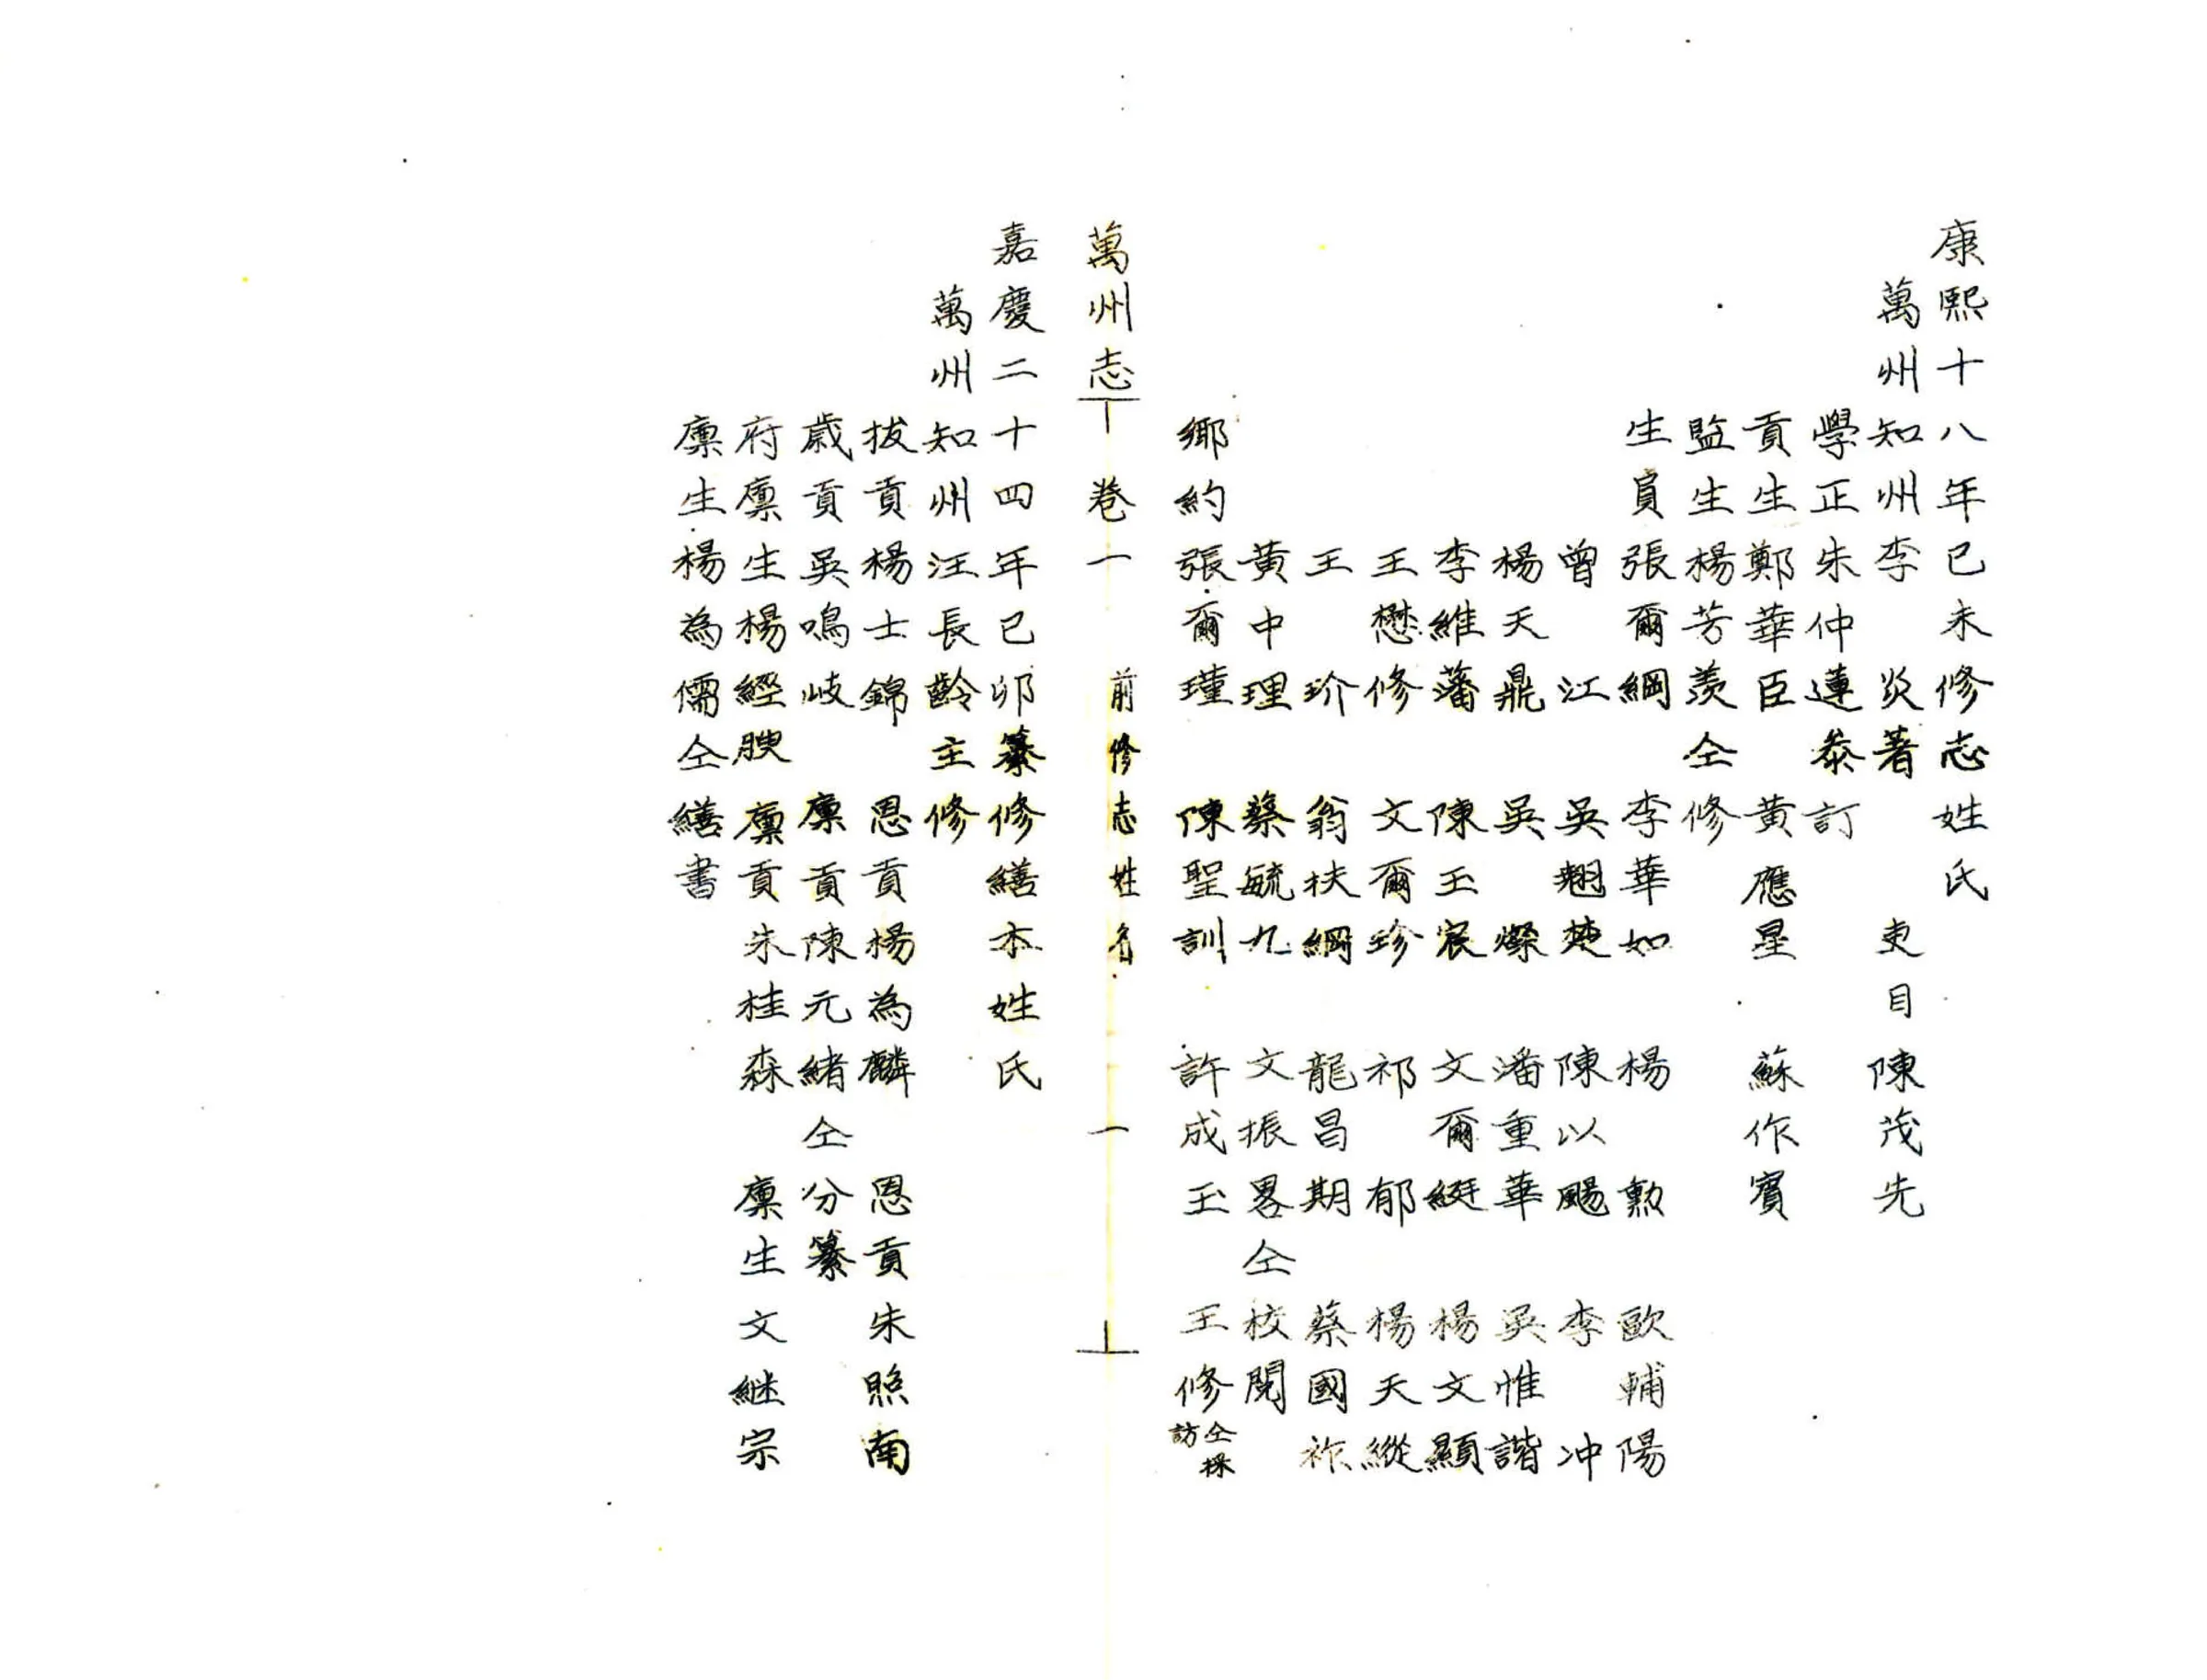 康熙十八年已未修志姓氏
萬州知州李　炎著　吏目　陳茂先
學正朱仲蓮叅訂
貢生鄭華臣　黃應星　蘇作賓
監生楊芳羨仝修
生員張爾綱　李華如　楊　勲　歐輔陽
曾　江　吳翹楚　陳以颺　李　冲
楊天鼎　吳　燦　潘重華　吳惟諧
李維藩　陳王宸　文爾綎　楊文顯
王懋修　文爾珍　祁　郁　楊天縱
王　玠　翁扶綱　龍昌期　蔡國祚
黃中理　蔡毓九　文振畧仝校閱
鄉約張爾瑾　陳聖訓　許成玉　王修仝採訪
萬州志　卷一　前修志姓名　一
嘉慶二十四年已卯纂修繕本姓氏
萬州知州汪長齡主修
拔貢楊士錦　恩貢楊為麟　恩貢朱照南
歲貢吳鳴岐　廩貢陳元緒仝分纂
府廩生楊經腴　廩貢朱桂森　廩生文継宗
廩生楊為儒仝繕書